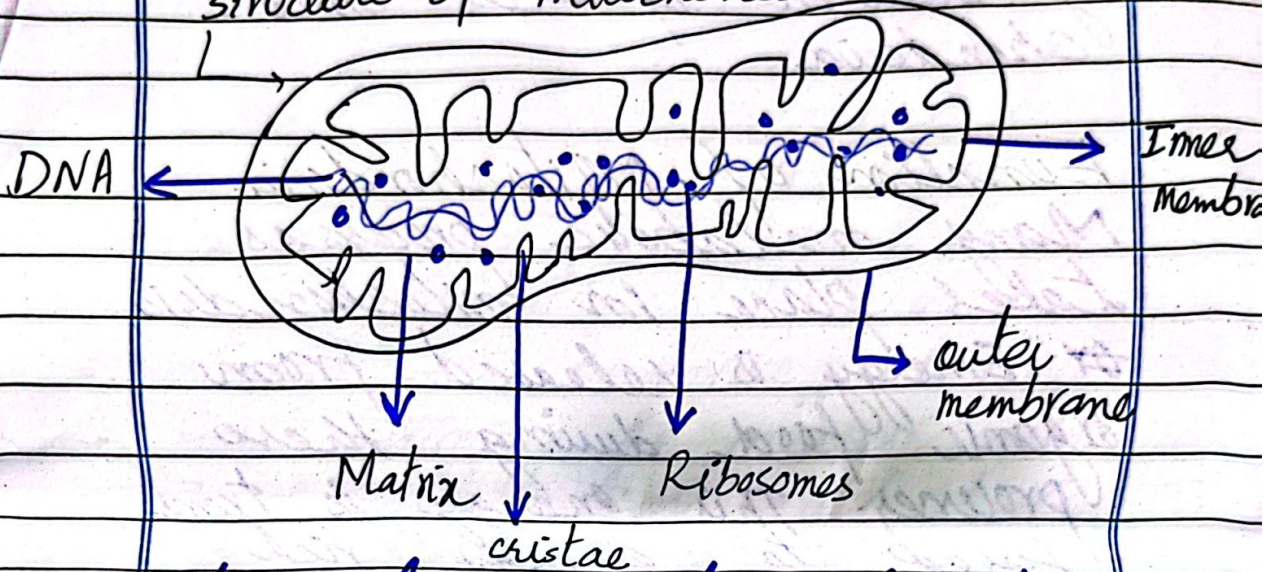 structure of
DNA
Inner
Membra
outer
membrane
Matrix
Ribosomes
cristae